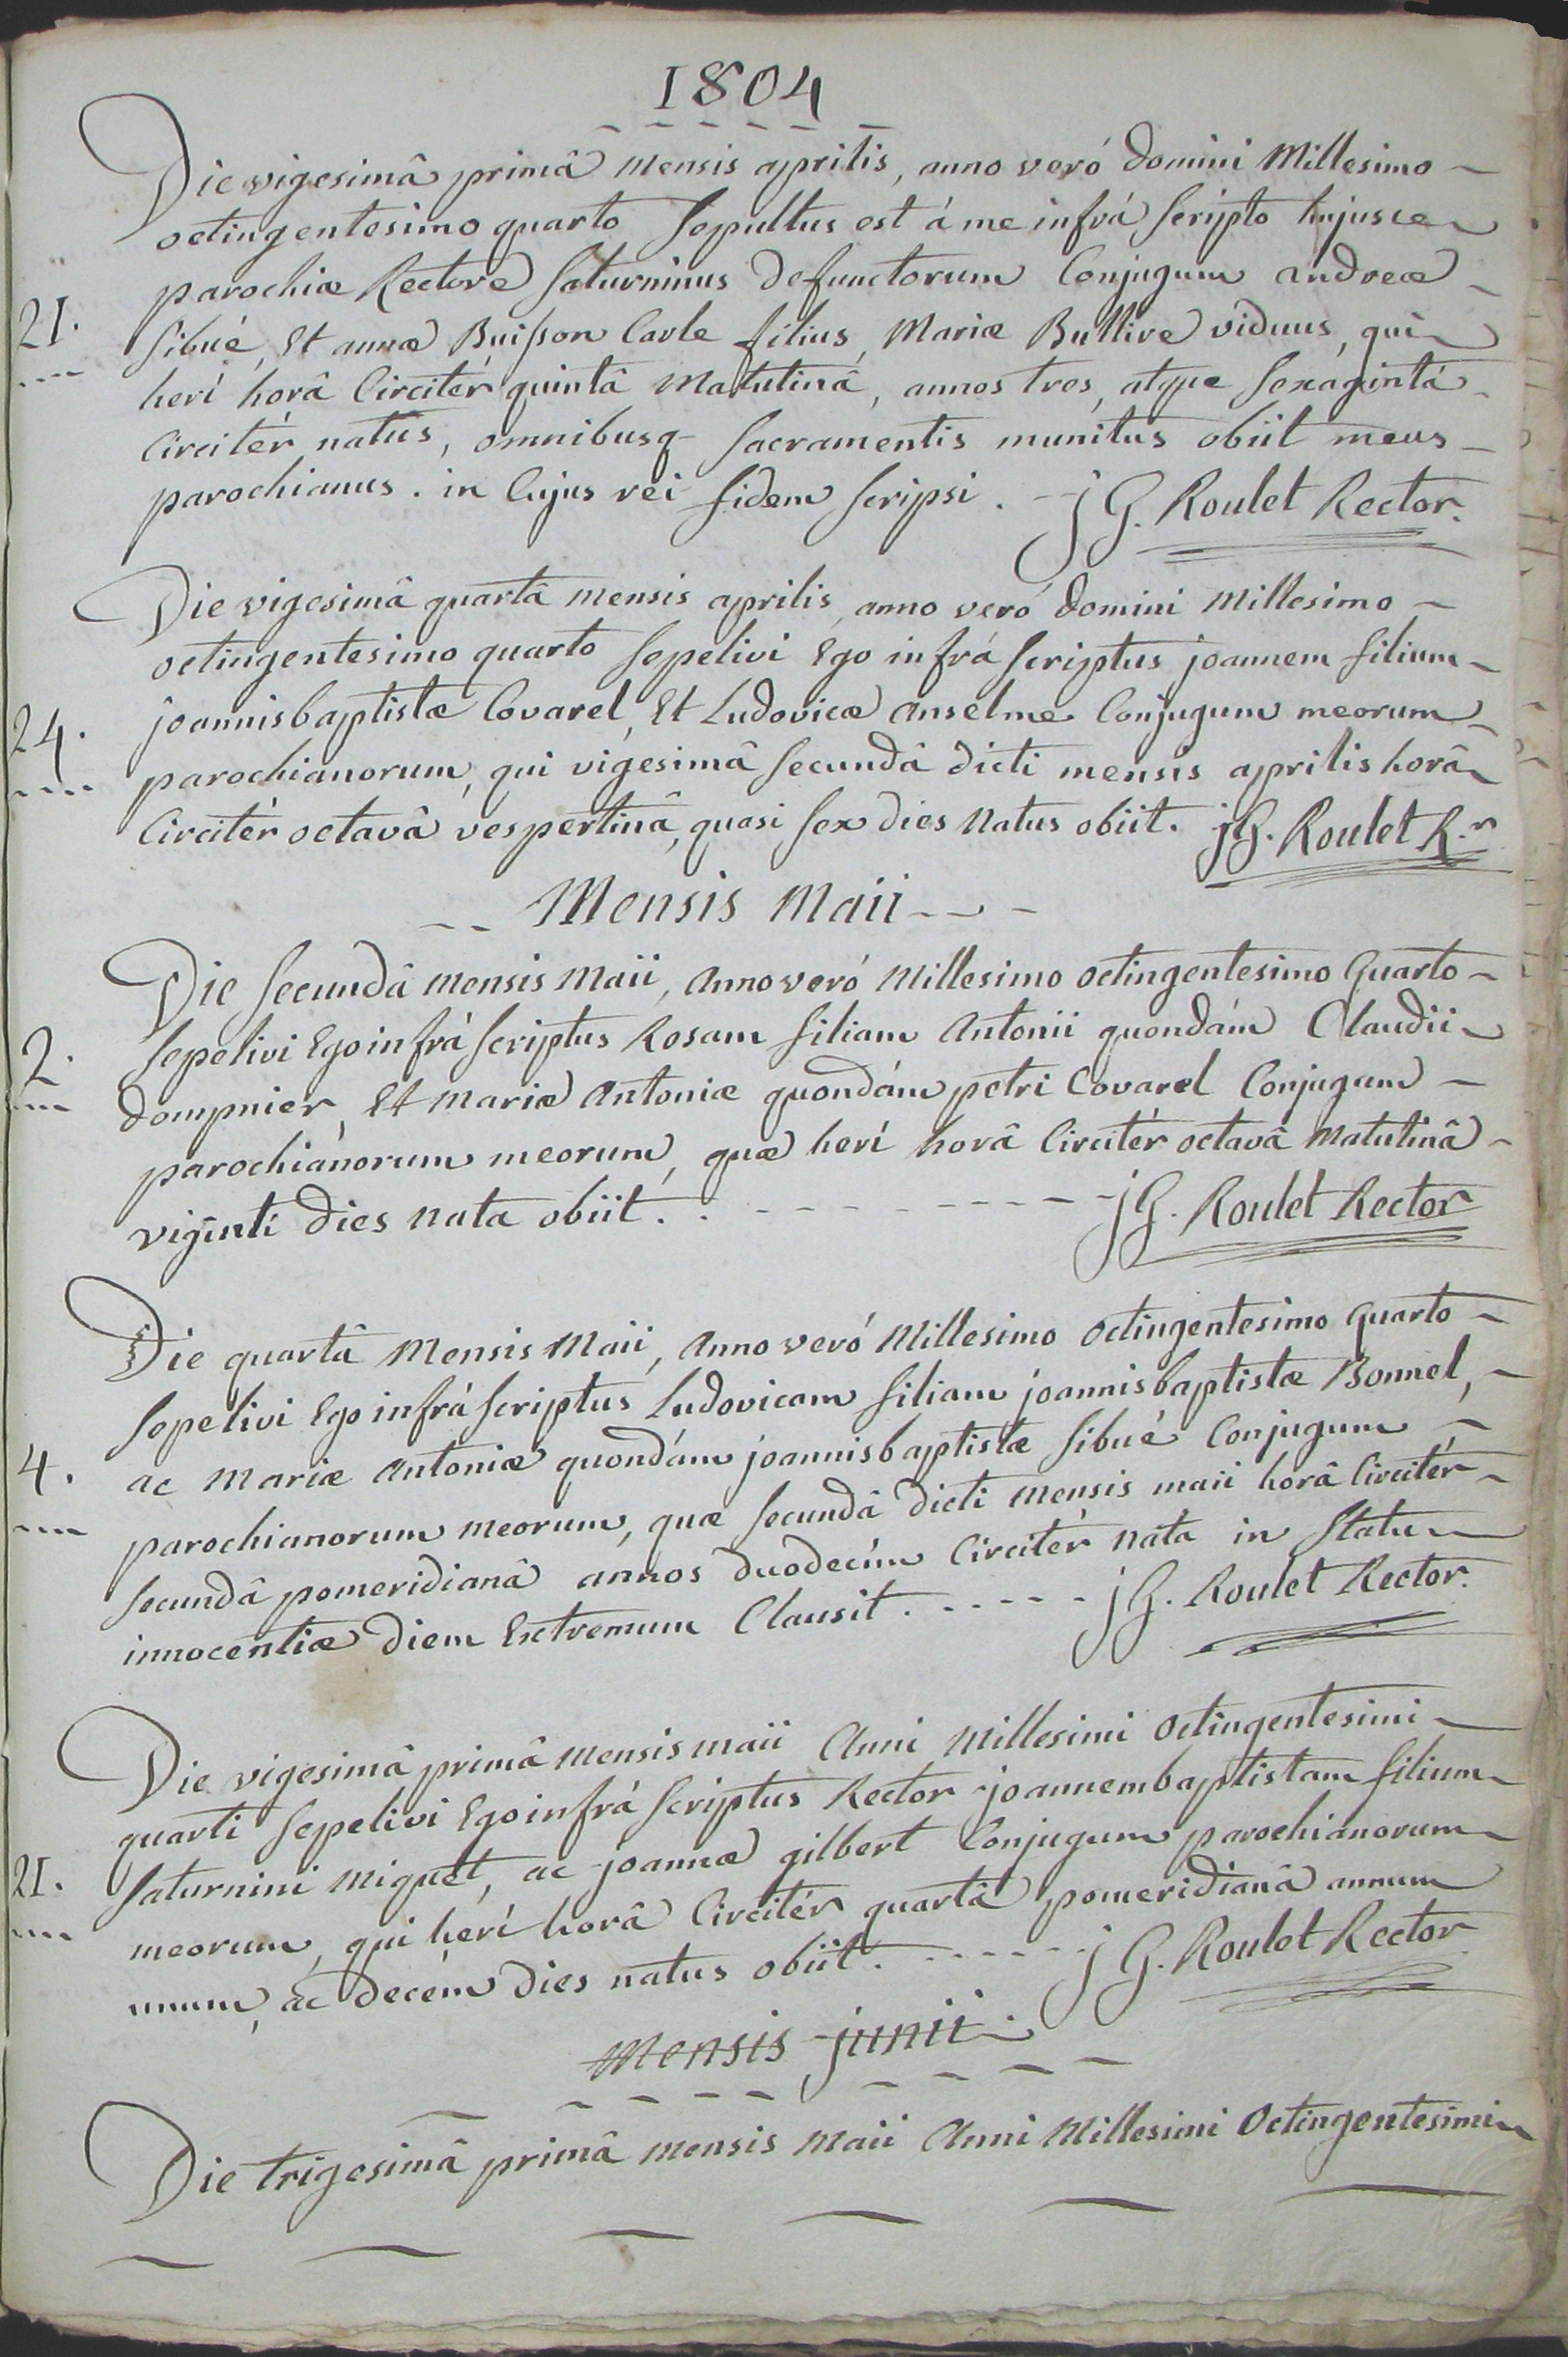 1804
Die vigesimâ primâ mensis aprilis, anno veró domini Millesimo
octingentesimo quarto sepultus est á me infrá scripto hujusce
parochiæ Rectore saturninus defunctorum Conjugum andreæ
21.
sibué, Et annæ Buisson Carle filius, Mariæ Bullire viduus, qui
herí horâ Circitér quintâ Matutinâ, annos tres, atque sexagintá
Circitér natus, omnibusq sacramentis munitus obiit meus
parochianus. in Cujus rei fidem scripsi. jG. Roulet Rector.
Die vigesimâ quartâ mensis aprilis, anno veró domini Millesimo
octingentesimo quarto sepelivi Ego infrá scriptus joannem filium
24.
joannisbaptistæ Covarel, Et Ludovicæ anselme Conjugum meorum
parochianorum, qui vigesimâ secundâ dicti mensis aprilis horâ
Circitér octavâ vespertinâ, quasi sex dies natus obiit. jG. Roulet R.r
Mensis Maii
Die secundâ mensis Maii, Anno veró Millesimo octingentesimo Quarto
2.
sepelivi Ego infrá scriptus Rosam filiam Antonii quondám Claudii
dompnier, Et Mariæ Antoniæ quondám petri Covarel Conjugum
parochianorum meorum, quæ herí horâ Circitér octavâ Matutinâ
vigintí dies nata obiit. jG. Roulet Rector
Die quartâ Mensis Maii, Anno veró Millesimo octingentesimo Quarto
sepelivi Ego infrá scriptus Ludovicam filiam joannisbaptistæ Bonnel,
4.
ac Mariæ Antoniæ quondám joannisbaptistæ sibué Conjugum
parochianorum meorum, quæ secundâ dicti mensis maii horâ Circitér
secundâ pomeridianâ annos duodecím Circitér nata in statu
innocentiæ diem Extremum Clausit. jG. Roulet Rector.
Die vigesimâ primâ mensis maii Anni Millesimi octingentesimi
quarti sepelivi Ego infrá scriptus Rector joannembaptistam filium
21.
saturnini Miquet, ac joannæ gilbert Conjugum parochianorum
meorum, qui herí horâ Circitér quartâ pomeridianâ annum
unum, ac decém dies natus obiit. jG. Roulet Rector
Mensis junii
Die trigesimâ primâ mensis Maii Anni Millesimi Octingentesimi